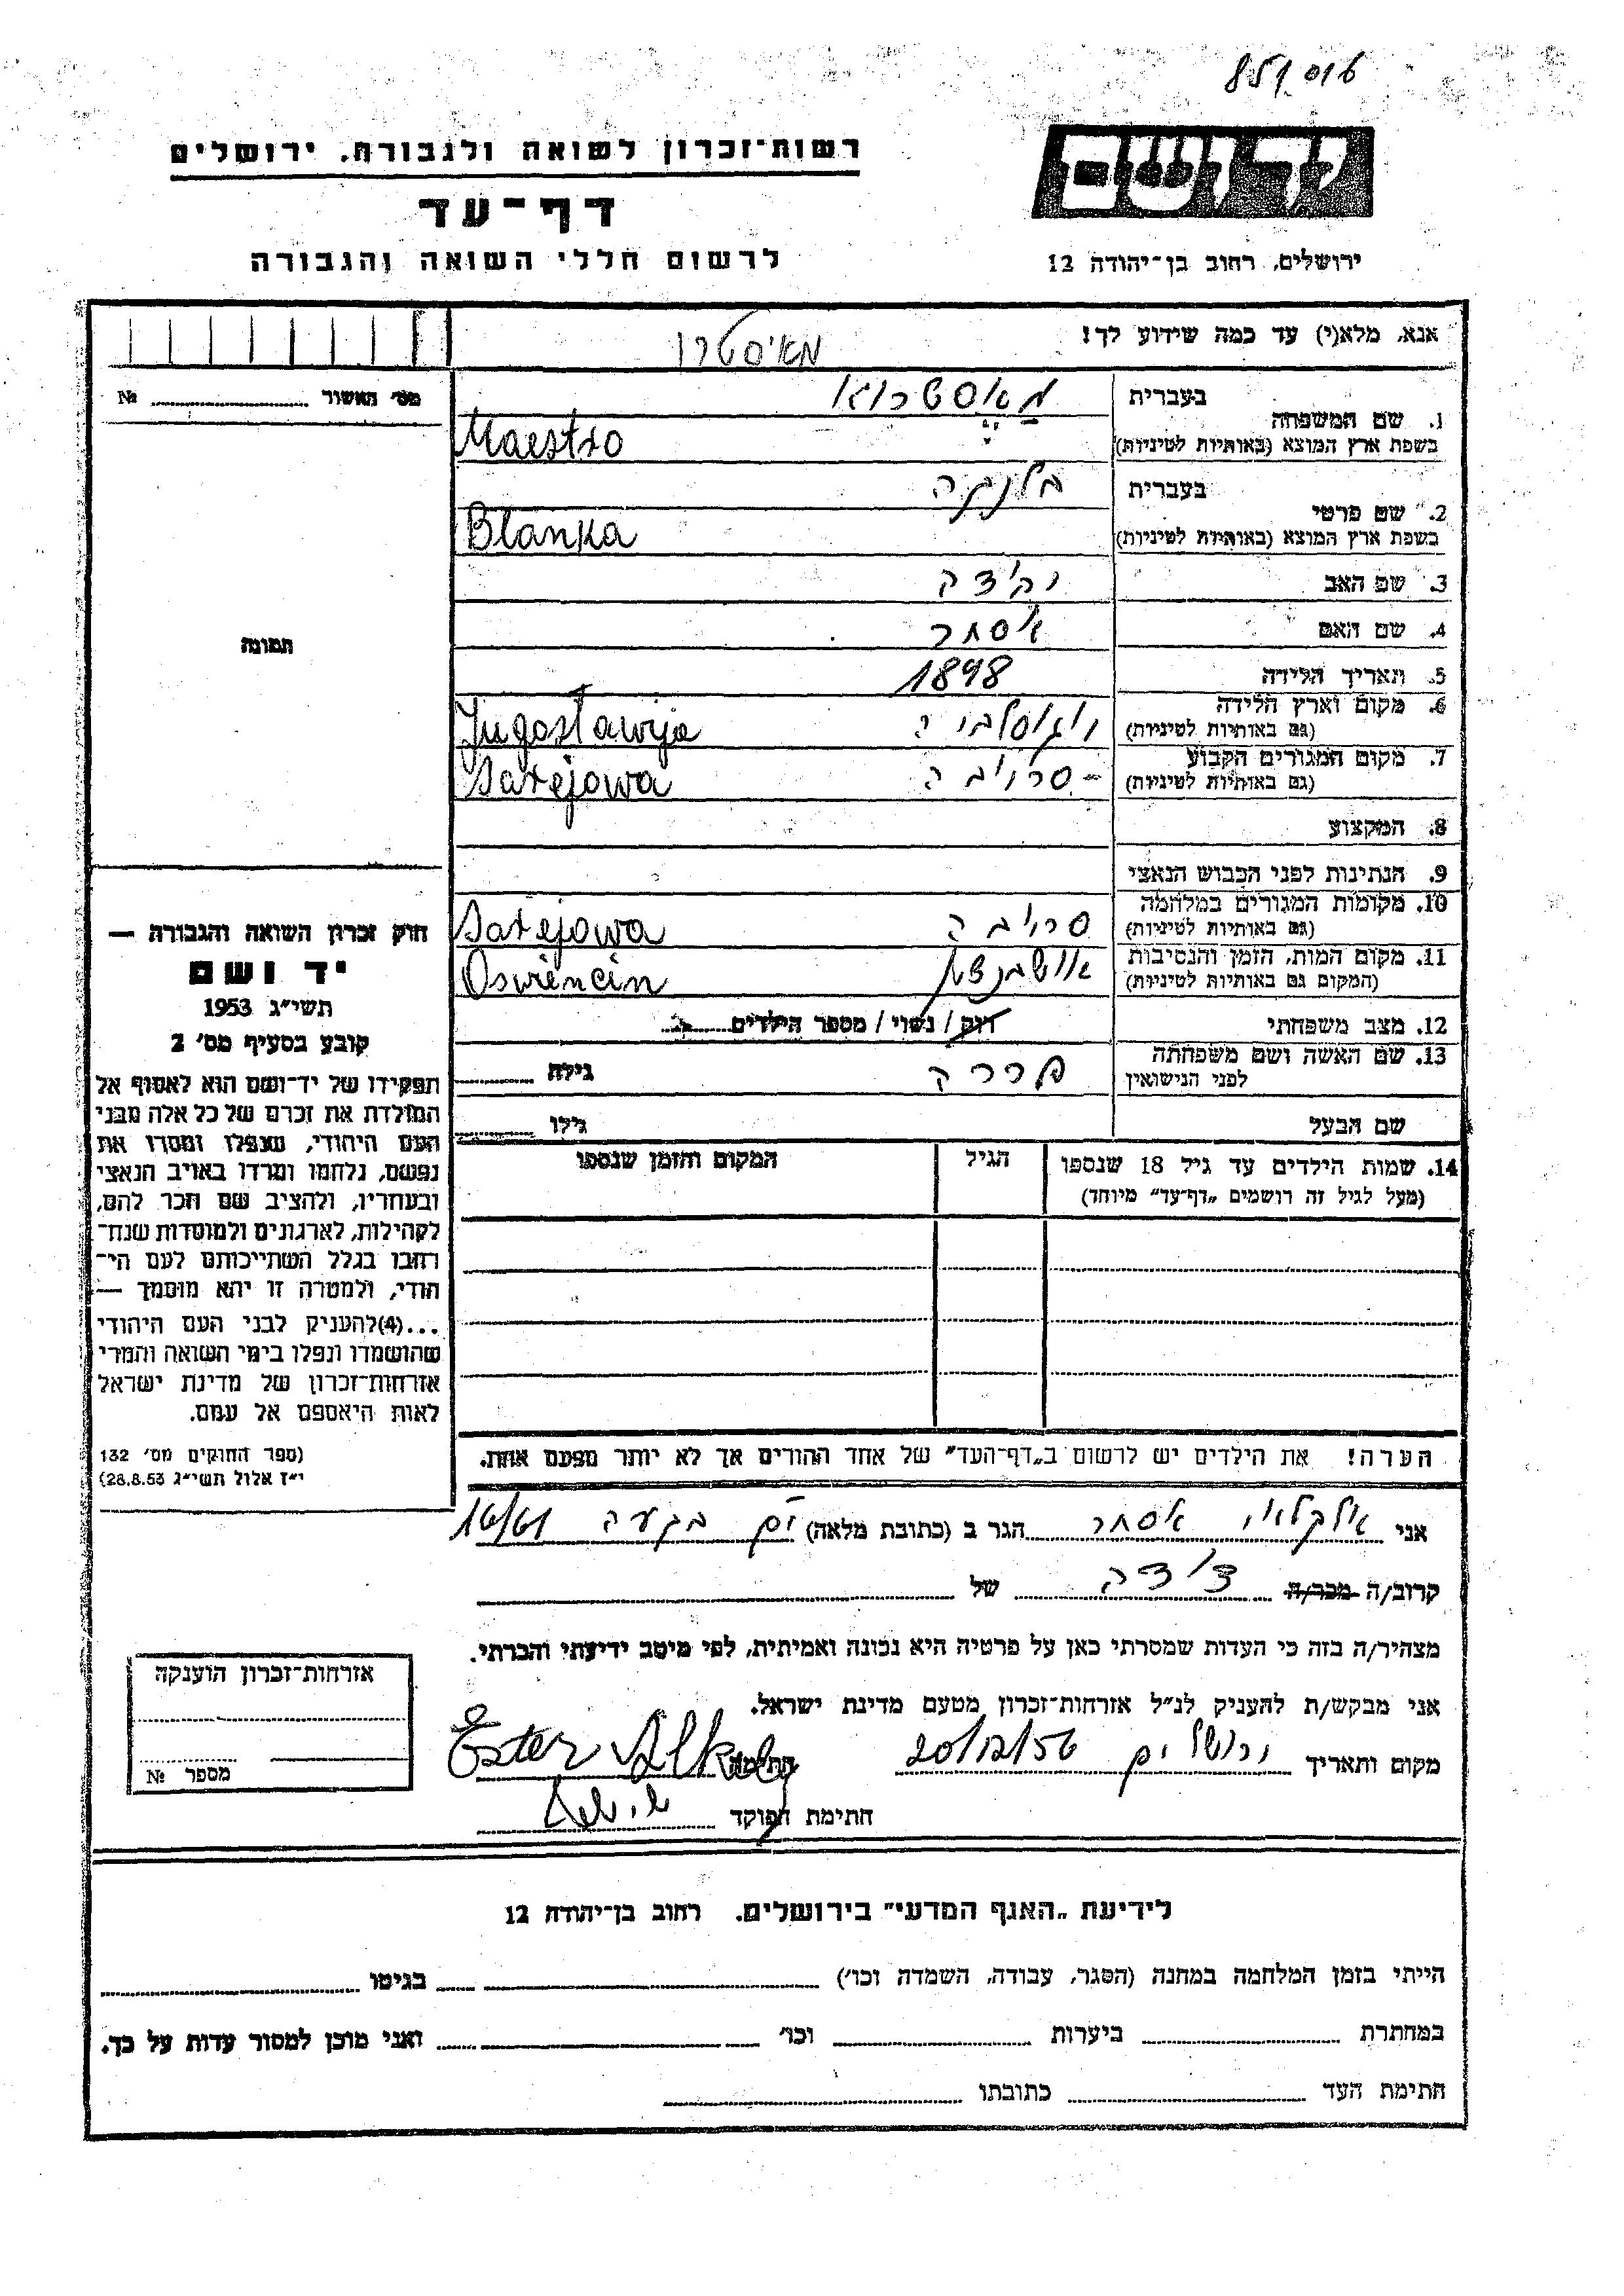 851016
רשות־זכרון לשואה ולגבורה, ירושלים
דף־עד
לרשום חללי השואה והגבורה
יד ושם
ירושלים, רחוב בן־יהודה 12
אנא, מלא(י) עד כמה שידוע לך!
מאיסטרו
מס' האשור № 
1. שם המשפחה בעברית
בשפת ארץ המוצא (באותיות לטיניות) Maestro
2. שם פרטי בעברית בלנקה
בשפת ארץ המוצא (באותיות לטיניות) Blanka
3. שם האב
4. שם האם אסתר
5. תאריך הלידה 1898
6. מקום וארץ הלידה יוגוסלביה Jugoslawija
(גם באותיות לטיניות)
7. מקום המגורים הקבוע סרויבה Sarejowa
(גם באותיות לטיניות)
8. המקצוע
9. הנתינות לפני הכבוש הנאצי
10. מקומות המגורים במלחמה סרויבה Sarejowa
(גם באותיות לטיניות)
11. מקום המות, הזמן והנסיבות Oswiencin
(המקום גם באותיות לטיניות)
12. מצב משפחתי רוק / נשוי / מספר הילדים
13. שם האשה ושם משפחתה גילה
לפני הנישואין
שם הבעל גילו
14. שמות הילדים עד גיל 18 שנספו הגיל המקום והזמן שנספו
(מעל לגיל זה רושמים „דף־עד" מיוחד)
הערה! את הילדים יש לרשום ב„דף־העד" של אחד ההורים אך לא יותר מפעם אחת.
תמונה
חוק זכרון השואה והגבורה —
יד ושם
תשי"ג 1953
קובע בסעיף מס' 2
תפקידו של יד־ושם הוא לאסוף אל
המולדת את זכרם של כל אלה מבני
העם היהודי, שנפלו ומסרו את
נפשם, נלחמו ומרדו באויב הנאצי
ובעוזריו, ולהציב שם וזכר להם,
לקהילות, לארגונים ולמוסדות שנח־
רבו בגלל השתייכותם לעם הי־
הודי, ולמטרה זו יהא מוסמך —
...(4)להעניק לבני העם היהודי
שהושמדו ונפלו בימי השואה והמרי
אזרחות־זכרון של מדינת ישראל
לאות היאספם אל עמם.
(ספר החוקים מס' 132
י"ז אלול תשי"ג 28.8.53)
אני אלקלאי אסתר הגר ב (כתובת מלאה)
קרוב/ה מכר/ה של
מצהיר/ה בזה כי העדות שמסרתי כאן על פרטיה היא נכונה ואמיתית, לפי מיטב ידיעתי והכרתי.
אני מבקש/ת להעניק לנ"ל אזרחות־זכרון מטעם מדינת ישראל.
מקום ותאריך ירושלים 20/12/56 חתימה Ester Alkaly
חתימת הפוקד
אזרחות־זכרון הוענקה
מספר №
לידיעת „האגף המדעי" בירושלים. רחוב בן־יהודה 12
הייתי בזמן המלחמה במחנה (הסגר, עבודה, השמדה וכו') בגיטו
במחתרת ביערות וכו' ואני מוכן למסור עדות על כך.
חתימת העד כתובתו